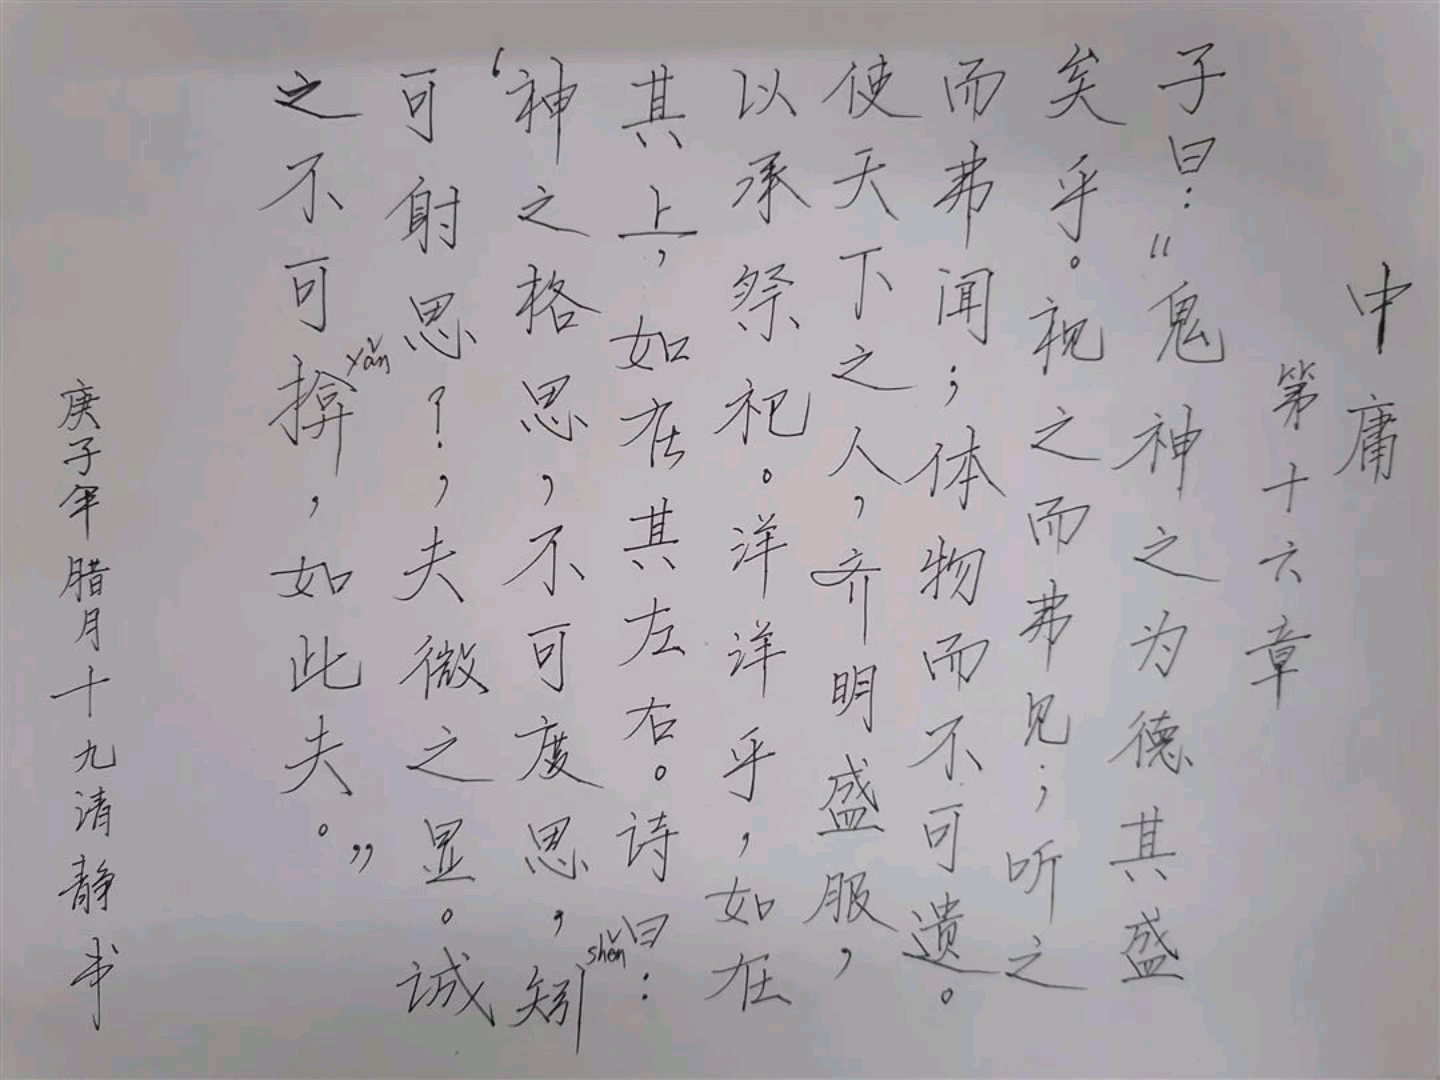 中庸
第十六章
子曰：“鬼神之为德其盛
矣乎。视之而弗见；听之
而弗闻；体物而不可遗。
使天下之人，齐明盛服，
以承祭祀。洋洋乎，如在
其上，如在其左右。诗曰：
‘神之格思，不可度思，矧shěn
可射思？，夫微之显。诚
之不可揜yǎn，如此夫。”
庚子年腊月十九清静书